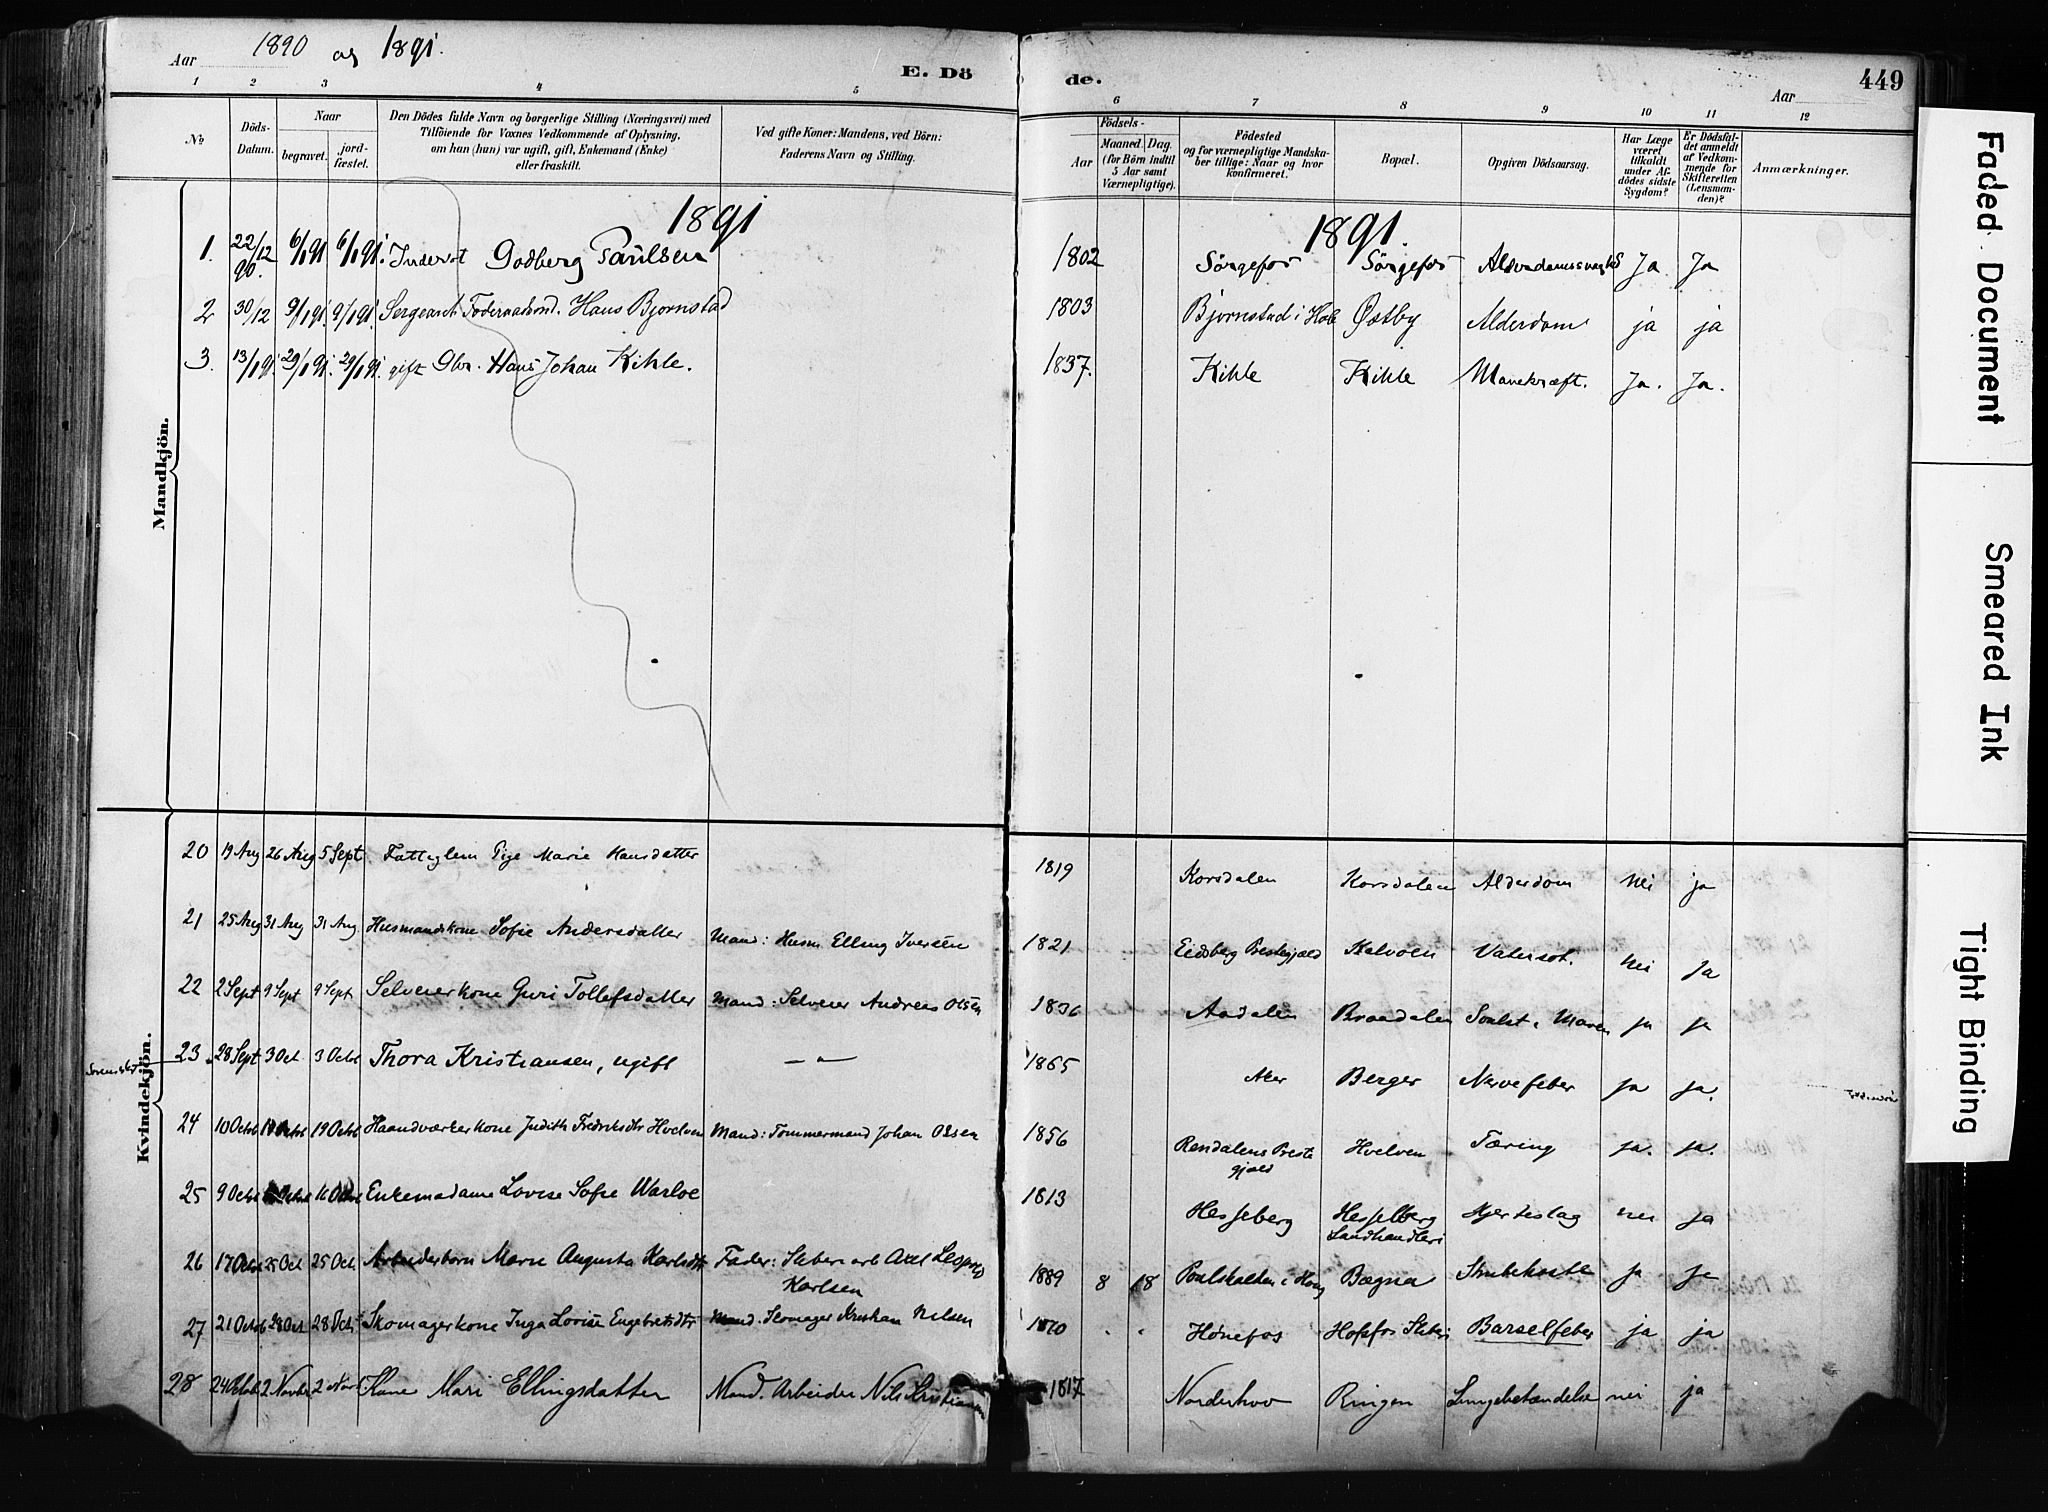 Aar 1890 og 1891.
E. Dö
de.
Aar
449
1 2 3 4 5
6 7 8 9 10 11 12
№
Döds-Datum.
Naar
begravet.
jord-fæstet.
Den Dödes fulde Navn og borgerlige Stilling (Næringsvei) med
Tilföiende for Voxnes Vedkommende af Oplysning,
om han (hun) var ugift, gift, Enkemand (Enke)
eller fraskilt.
Ved gifte Koner: Mandens, ved Börn:
Faderens Navn og Stilling.
Födsels-
Aar
Maaned. Dag.
(for Börn indtil
5 Aar samt
Værnepligtige).
Födested
og for værnepligtige Mandska-
ber tillige: Naar og hvor
konfirmeret.
Bopæl.
Opgiven Dödsaarsag.
Har Læge
været
tilkaldt
under Af-
dödes sidste
Sygdom?
Er Dödsfal-
det anmeldt
af Vedkom-
mende for
Skifteretten
(Lensman-
den)?
Anmærkninger.
Mandkjön.
1891
1891.
1. 22/12 90. 6/1 91 6/1 91. Godberg Paulsen 1802 Sörgefos Sörgefos Ja Ja
2 30/12 9/1 91. 9/1 91. Sergeant Hans Bjørnstad 1803 Bjørnstad i Hole Østby Alderdom ja ja
3. 13/1 91. 29/1 91. 29/1 91. gift Hans Johan Kihle. 1837. Kihle Kihle Mavekræft. Ja. Ja.
Kvindekjön.
20 19 Aug 26 Aug 5 Sept Fattiglem Pige Marie Hansdatter 1819 Korsdalen Korsdalen Alderdom nei ja
21 25 Aug 31 Aug 31 Aug Husmandskone Sofie Andersdatter Mand: Husm Elling Iversen 1821 Eidsberg Prestegjæld Kalvoen Vatersot. nei Ja
22 2 Sept 9 Sept 9 Sept Selveierkone Guri Tollefsdatter Mand: Selveier Andreas Olsen 1836 Aadalen Braadalen ja ja
23 28 Sept 3 Oct 3 Octb Thora Kristiansen, ugift — " — 1865 Aker Berger Nervefeber ja ja.
24 10 Octob 19 Octob 19 Octob Haandværkerkone Judith Fredriksdtr Hvelven Mand: Tømmermand Johan Olsen 1856 Rendalens Preste
gjæld Hvelven Tæring ja. ja.
25 9 Octob 16 Octob Enkemadame Lovise Sofie Warloe 1813 Hesselberg Hesselberg
Landhandleri Hjerteslag nei ja
26 17 Octob 25 Oct 25 Oct Arbeiderbarn Marie Augusta Karlsdtr Fader: Sliberiarb Axel Leopold
Karlsen 1889 8 18 Bægna Strubehoste ja ja
27 21 Octob 28 Oct 28 Oct Skomagerkone Inga Lovise Engebretsdtr Mand. Skomager Kristian Nilsen Hønefos Hofsfos Sliberi Barselfeber ja ja
28 24 Octob 2 Novbr 2 Novb Kone Mari Ellingsdatter Mand. Arbeider Nils Kristiansen 1817 Norderhov Ringen Lungebetændelse nei ja
Faded Document
Smeared Ink
Tight Binding